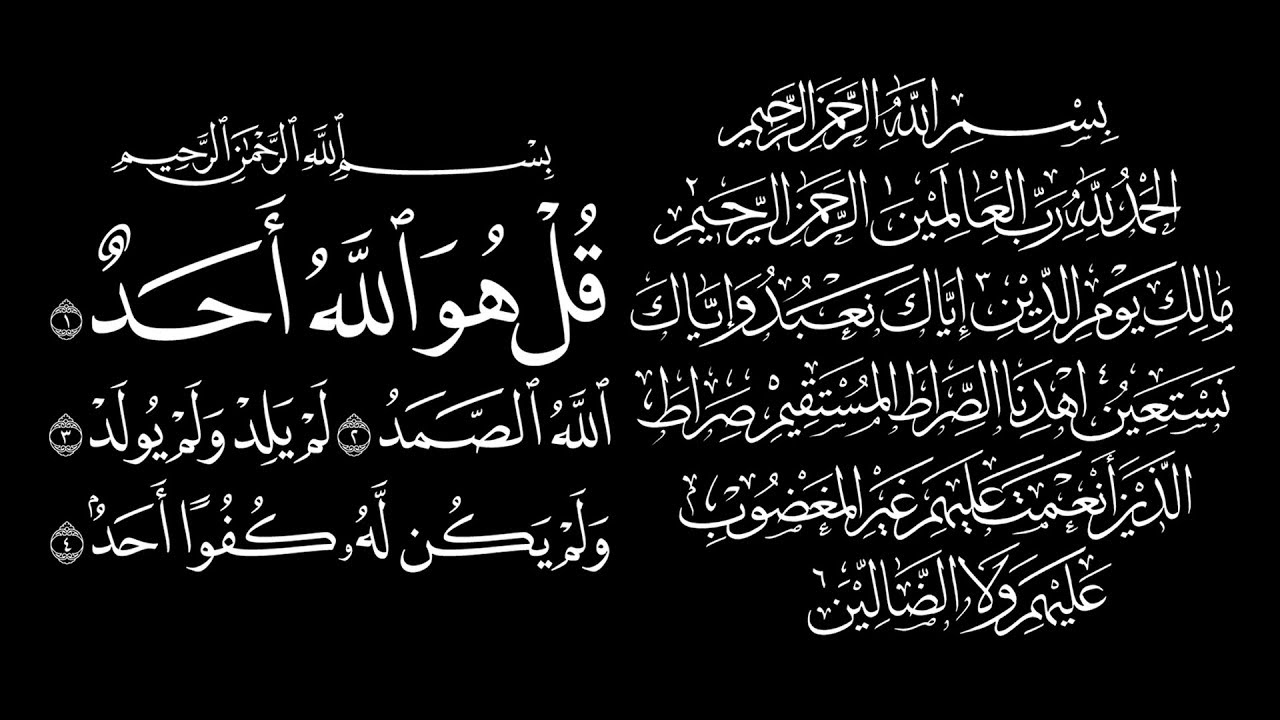 بِسْمِ اللَّهِ الرَّحْمَنِ الرَّحِيمِ
الْحَمْدُ لِلَّهِ رَبِّ الْعَالَمِيْنَ ١ الرَّحْمَنِ الرَّحِيْمِ ٢
مَالِكِ يَوْمِ الدِّيْنِ ٣ إِيَّاكَ نَعْبُدُ وَإِيَّاكَ
نَسْتَعِيْنُ ٤ اهْدِنَا الصِّرَاطَ الْمُسْتَقِيْمَ صِرَاطَ
الَّذِيْنَ أَنْعَمْتَ عَلَيْهِمْ غَيْرِ الْمَغْضُوْبِ
عَلَيْهِمْ وَلَا الضَّالِّيْنَ ٦
بِسْمِ ٱللَّهِ ٱلرَّحْمَٰنِ ٱلرَّحِيمِ
قُلْ هُوَ ٱللَّهُ أَحَدٌ ١
ٱللَّهُ ٱلصَّمَدُ ٢ لَمْ يَلِدْ وَلَمْ يُولَدْ ٣
وَلَمْ يَكُن لَّهُۥ كُفُوًا أَحَدٌۢ ٤